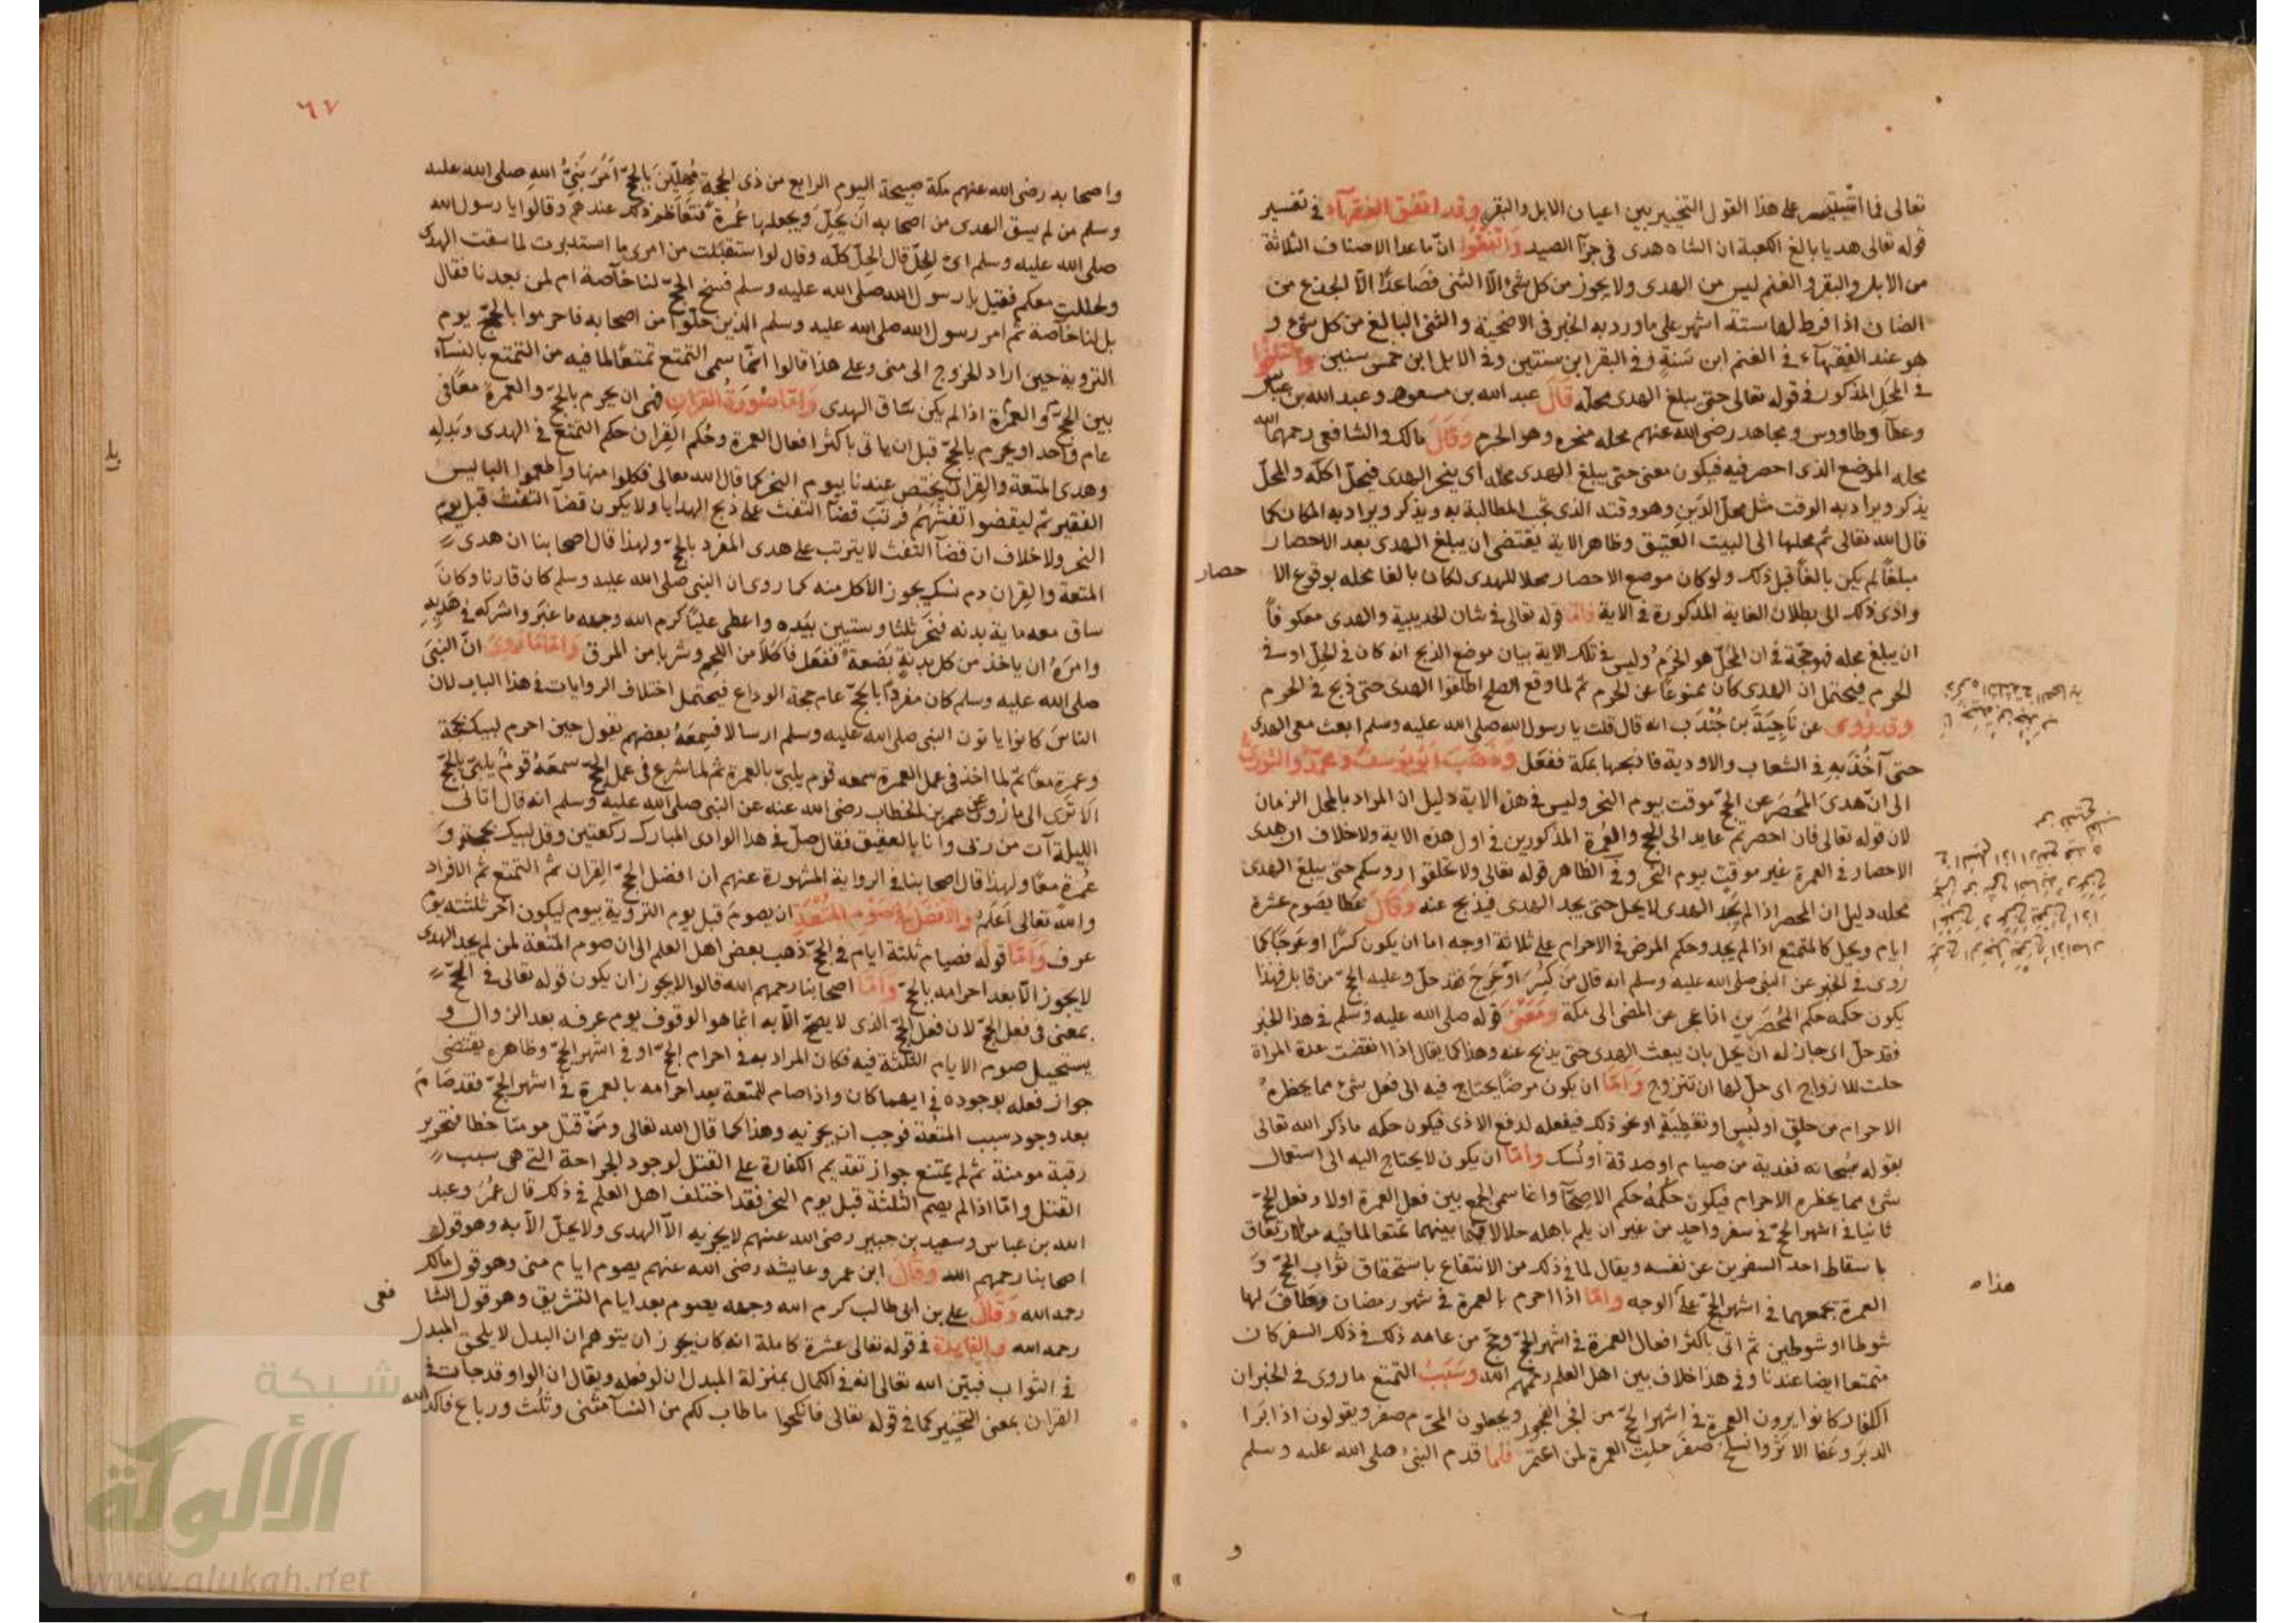 تعالى فما استيسر على هذا القول التخيير بين اعيان الابل والبقر وقد اتفق الفقهآء في تفسير
قوله تعالى هديا بالغ الكعبة ان الشاه هدى في جزآ الصيد واتفقوا انّ ما عدا الاصناف الثلاثة
من الابل والبقر والغنم ليس من الهدى ولا يجوز من كل شئ الّا الثنى فصَاعدًا الّا الجذع من
الضان اذا فرط لها ستة اشهر على ما ورد به الخبر في الاضحية والثنى البالغ من كل شئ و
هو عند الفقهآء في الغنم ابن سَنةٍ وفي البقر ابن سنتين وفي الابل ابن خمس سنين واختلفوا
في المَحِل المذكور في قوله تعالى حتى يبلغ الهدى محلّه قَالَ عبد الله بن مسعود وعبد الله بن عباس
وعطآ وطاووس ومجاهد رضى الله عنهم محله منحره وهو الحرم وقَالَ مالك والشافعى رحمهما الله
محله الموضع الذى احصر فيه فيكون معنى حتى يبلغ الهدى محله اى ينحر الهدى فيحلّ اكله والمحلّ
يذكر ويراد به الوقت مثل محلّ الدَين وهو وقته الذى تجب المطالبة به ويذكر ويراد به المكان كما
قال الله تعالى ثم محلها الى البيت العتيق وظاهر الاية يقتضى ان يبلغ الهدى بعد الاحصار
مبلغًا لم يكن بالغًا قبل ذلك ولو كان موضع الاحصار محلا للهدى لكان بالغا محله بوقوع الا حصار
وادى ذلك الى بطلان الغاية المذكورة في الاية فامّا قوله تعالى في شان الحديبية والهدى معكوفاً
ان يبلغ محله فهو حجّة في ان المحلّ هو الحَرَم وليس في تلك الاية بيان موضع الذبح انه كان في الحِلّ او في
الحرم فيحتمل ان الهدى كان ممنوعًا عن الحرم ثم لما وقع الصلح اطلقوا الهدى حتى ذبح في الحرم
وقد رُوى عن نَاجِيَةَ بن جُندَب انه قال قلت يا رسول الله صلى الله عليه وسلم ابعث معى الهدى
حتى آخُذَ به في الشعاب والاودية فاذبحها بمكة ففعَل وذَهَبَ ابُو يُوسف ومحمّد والثورىّ
الى انّ هدىَ المُحصَر عن الحجّ موقت بيوم النحر وليس في هذه الاية دليل ان المراد بالمحل الزمان
لان قوله تعالى فان احصرتم عايد الى الحج والعُمرة المذكورين في اول هذه الاية ولا خلاف ان هدى
الاحصار في العمرة غير موقت بيوم النحر وفى الظاهر قوله تعالى ولا تحلقوا روسكم حتى يبلغ الهدى
محله دليل ان المحصر اذا لم يَجِد الهدى لا يحل حتى يجد الهدى فيذبح عنه وقَالَ عطا يصَوم عشرة
ايام ويحل كالمتمتع اذا لم يجد وحكم المرض في الاحرام على ثلاثة اوجه اما ان يكون كسرًا او عَرَجًا كما
رُوى في الخبر عن النبى صلى الله عليه وسلم انه قال من كُسِرَ او عَرِجَ فقد حلّ وعليه الحجّ من قابل فهذا
يكون حكمه حكم المُحصَرين اذا عجز عن المضى الى مكة ومَعنى قوله صلى الله عليه وسلم في هذا الخبر
فقد حلّ اى جاز له ان يحل بان يبعث الهدى حتى يذبح عنه وهذا كما يقال اذا انقضت عدة المراة
حلت للازواج اى حلّ لها ان تتزوج وامّا ان يكون مرضًا يحتاج فيه الى فعل شئ مما يحظره
الاحرام من حلقٍ او لُبسٍ او تغطِيَةٍ او نحو ذلك فيفعله لدفع الاذى فيكون حكمه ما ذكر الله تعالى
بقوله سُبحانه ففدية من صيام او صدقة او نُسك وامّا ان يكون لا يحتاج اليه الى استعمال
شئ مما يحظره الاحرام فيكون حكمُه حكم الاصحّآ وانما سمى الجمع بين فعل العمرة اولا وفعل الحجّ
ثانيا في اشهر الحجّ في سفر واحدٍ من غير ان يلم باهله حلالا فيما بينهما تمتعا لما فيه من الارتفاق
با سقاط احد السفرين عن نفسه ويقال لما في ذلك من الانتفاع باستحقاق ثواب الحجّ وَ
العمرة بجمعهما في اشهر الحجّ على الوجه وامّا اذا احرم بالعمرة في شهر رمضان وطَافَ لها
شوطا او شوطين ثم اتى باكثر افعال العمرة في اشهر الحجّ وحجّ من عامه ذلك في ذلك السفر كان
متمتعا ايضا عندنا وفى هذا خلاف بين اهل العلم رحمهم الله وسَبَبُ التمتع ما روى في الخبر ان
الكفار كانوا يرون العمرة في اشهر الحجّ من افجر الفجور ويجعلون المحرّم صفر ويقولون اذا بَرا
الدبَر وعَفا الاثر وانسلخ صَفَر حلت العمرة لمن اعتمر فلما قدم النبىُ صلى الله عليه وسلم
هذا
و
٦٧
واصحابه رضى الله عنهم مكة صبيحة اليوم الرابع من ذى الحجة مُهِلّين بالحجّ امَرَ نَبىُّ اللهِ صلى الله عليه
وسلم من لم يسق الهدى من اصحابه ان يحِلّ ويجعلها عُمرة فتعاظم ذلك عندهم وقالوا يا رسول الله
صلى الله عليه وسلم اىّ الحِلّ قال الحِلّ كلّه وقال لو استقبَلت من امرى ما استدبرت لما سقت الهدى
ولحللت معكم فقيل يا رسول الله صلى الله عليه وسلم فسخ الحجّ لنا خآصة ام لمن بعدنا فقال
بل لنا خاصة ثم امر رسول الله صلى الله عليه وسلم الذين حلّوا من اصحابه فاحرموا بالحجّ يوم
التروية حين اراد الخروج الى منى وعلى هذا قالوا انّما سمى التمتع تمتعًا لما فيه من التمتع بالنسآء
بين الحجّ والعمرة اذا لم يكن سَاق الهدى وامّا صُورَةُ القِران فهى ان يحرم بالحجّ والعمرة معًا في
عام واحد او يحرم بالحجّ قبل ان ياتى باكثر افعال العمرة وحُكم القِران حكم التمتع في الهدى وبَدلِهِ
وهدى المتعة والقِران يختص عندنا بيوم النحر كما قال الله تعالى فكلوا منها واطعموا البايس
الفقير ثم ليقضوا تفثهُم فرتّب قضآ التفث على ذبح الهدايا ولا يكون قضآ التفث قبل يوم
النحر ولا خلاف ان قضآ التفث لا يترتب على هدى المفرد بالحجّ ولهذا قال اصحابنا ان هدى
المتعة والقِران دم نسك يجوز الاكل منه كما روى ان النبى صلى الله عليه وسلم كان قارنا وكانَ
ساق معه ماية بدنه فنَحَر ثلثا وستيين بيَده واعطى عليًا كرم الله وجهه ما غبَر واشركه في هَديِهِ
وامرَهُ ان ياخذ من كل بدنةٍ بَضعةً ففعَل فاكلاَ من اللحم وشربا من المرق وامّا ما رُوِىَ انّ النبىَ
صلى الله عليه وسلم كان مفردًا بالحجّ عام حجة الوداع فيحتمل اختلاف الروايات في هذا الباب لان
الناسَ كانوا ياتون النبى صلى الله عليه وسلم ارسالا فسِمعَهُ بعضهم يقول حين احرم لبيك بحجّة
وعمرة معًا ثم لما اخذ في عمل العمرة سمعه قوم يلبىّ بالعمرة ثم لما شرع في عمل الحجّ سمعَهُ قومٌ يلبىّ بالحجّ
الا ترَى الى ما رُوى عن عمر بن الخطاب رضى الله عنه عن النبى صلى الله عليه وسلم انه قال اتانى
الليلة آت من ربّى وانا بالعقيق فقال صلّ في هذا الوادى المبارك ركعتين وقل لبيك بحجة وَ
عُمرة معًا ولهذا قال اصحابنا في الرواية المشهورة عنهم ان افضل الحجّ القِران ثم التمتع ثم الافراد
والله تعالى اعَلمُ والافضَل في صَوم المُتعَة ان يصومَ قبل يوم التروية بيوم ليكون آخر ثلثته يوم
عرف وامّا قوله فصيام ثلثة ايام في الحجّ ذهب بعض اهل العلم الى ان صوم المتعة لمن لم يجد الهدى
لا يجوز الّا بعد احرامه بالحجّ وامّا اصحابنا رحمهم الله قالوا لا يجوز ان يكون قوله تعالى في الحجّ
بمعنى في فعل الحجّ لان فعل الحجّ الذى لا يصحّ الّا به انما هو الوقوف يوم عرفه بعد الزوال و
يستحيل صوم الايام الثلثة فيه فكان المراد به في احرام الحجّ او في اشهر الحجّ وظاهره يقتضى
جواز فعله بوجوده في ايهما كان واذا صام للمتعة بعد احرامه بالعمرة في اشهر الحجّ فقد صَامَ
بعد وجود سبب المتعة فوجب ان يجزيه وهذا كما قال الله تعالى ومَن قتل مومنا خطا فتحرير
رقبة مومنة ثم لم يمتنع جواز تقديم الكفارة على القتل لوجود الجراحة التى هى سبب
القتل وامّا اذا لم يصم الثلثة قبل يوم النحر فقد اختلف اهل العلم في ذلك قال عُمرُ وعبد
الله بن عباس وسعيد بن جبير رضى الله عنهم لا يجزيه الّا الهدى ولا يحلّ الّا به وهو قول
اصحابنا رحمهم الله وقَالَ ابن عمر وعايشه رضى الله عنهم يصوم ايام منى وهو قول مالك
رحمه الله وقَالَ على بن ابى طالب كرم الله وجهه يصوم بعد ايام التشريق وهو قول الشا فعى
رحمه الله والفايدة في قوله تعالى عشرة كاملة انه كان يجوز ان يتوهم ان البدل لا يلحق المبدل
في الثواب فبيّن الله تعالى انه في الكمال بمنزلة المبدل ان لو فعله ويقال ان الواو قد جات في
القران بمعنى التخيير كما في قوله تعالى فانكحوا ما طاب لكم من النسآ مثنى وثُلث ورباع فاكد الله
شبكة
الألوكة
www.alukah.net